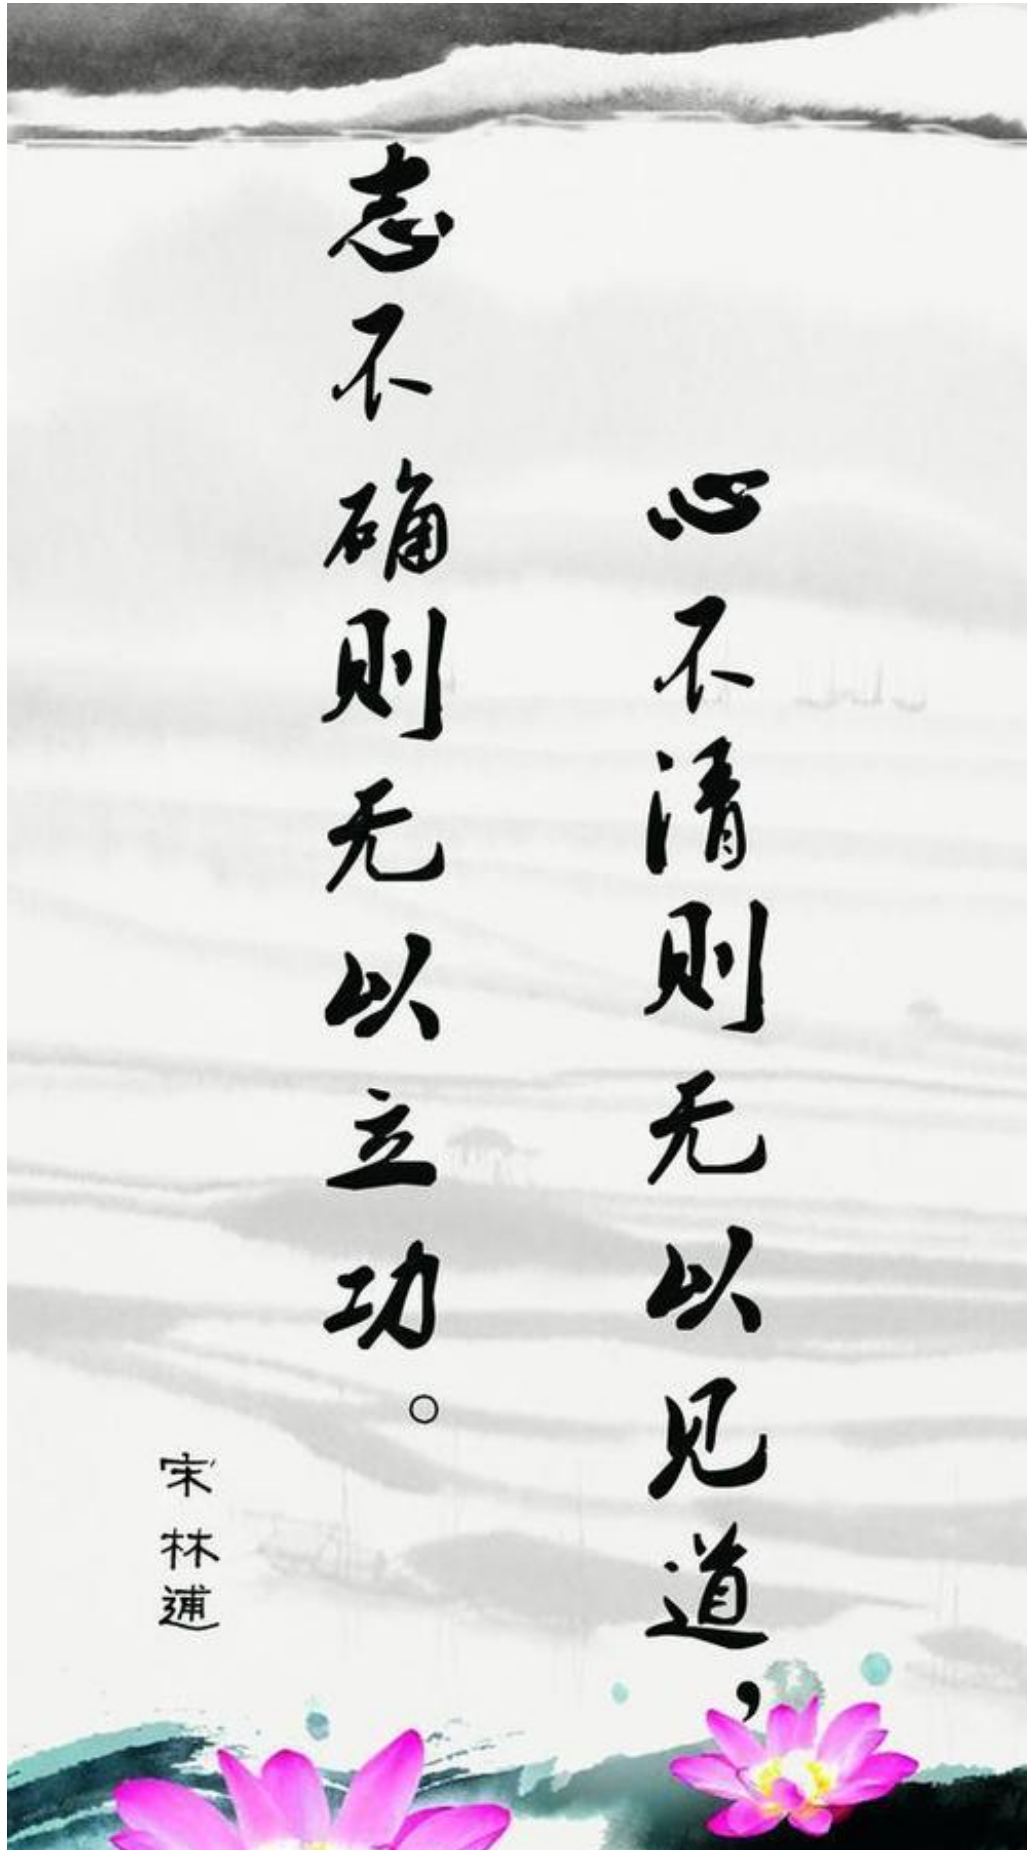 心不清则无以见道，
志不确则无以立功。
宋 林逋